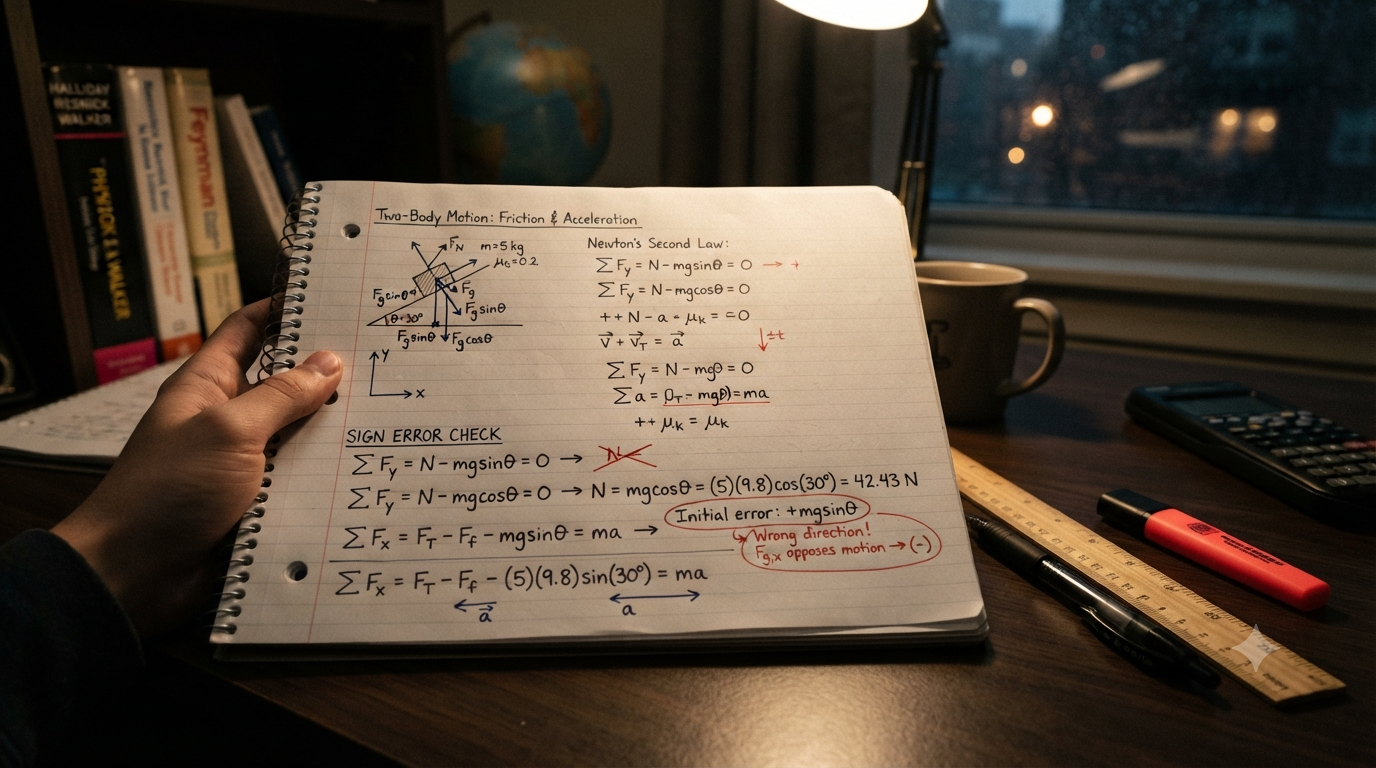 HALLIDAY
RESNICK
WALKER
Feynman
Two-Body Motion: Friction & Acceleration
F_N
m=5 kg
μ_0=0.2
F_g
F_g sinθ
θ=30°
F_g sinθ
F_g cosθ
y
x
Newton's Second Law:
∑F_y = N - mgsinθ = 0 → +
∑F_y = N - mgcosθ = 0
++ N - a - μ_K = =0
v⃗ + v⃗_T = a⃗
↓ ±t
∑F_y = N - mgθ = 0
∑a = - mg = ma
++ μ_K = μ_K
SIGN ERROR CHECK
∑F_y = N - mgsinθ = 0 →
∑F_y = N - mgcosθ = 0 → N = mgcosθ = (5)(9.8)cos(30°) = 42.43 N
Initial error: +mgsinθ
∑F_x = F_T - F_f - mgsinθ = ma →
Wrong direction!
F_g,x opposes motion → (-)
∑F_x = F_T - F_f - (5)(9.8)sin(30°) = ma
a⃗
a